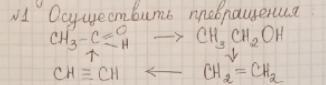 №1 Осуществить превращения:
CH₃-C=O H → CH₃CH₂OH
↑ ↓
CH≡CH ← CH₂=CH₂